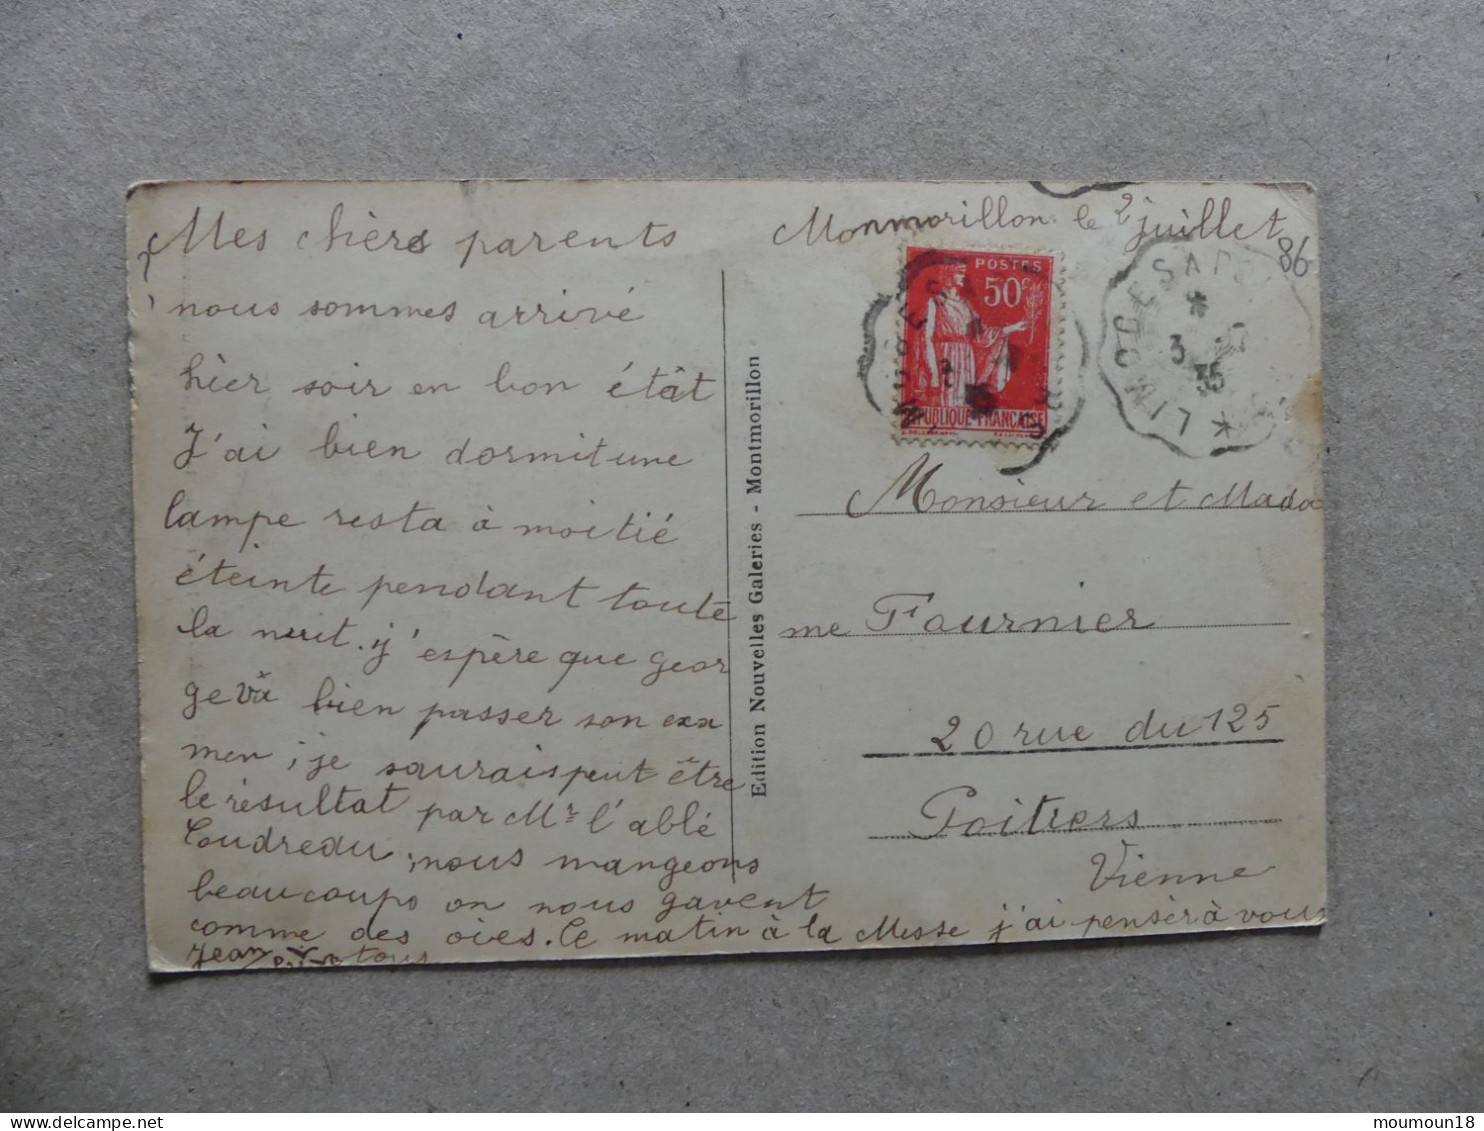 Mes chèrs parents
nous sommes arrivé
hier soir en bon étât
J'ai bien dormit une
lampe resta à moitié
éteinte pendant toute
la nuit. j'espère que geor
ge và bien passer son exa
men ; je saurais peut être
le résultat par Mr l'abbé
Coudreau. nous mangeons
beaucoups on nous gavent
comme des oies. Ce matin à la Messe j'ai pensér à vous
Jean tous
Monmorillon le 2 juillet
86
POSTES
50c
REPUBLIQUE FRANÇAISE
3
35
Edition Nouvelles Galeries - Montmorillon
Monsieur et Mada
me Fournier
20 rue du 125
Poitiers
Vienne
moumoun18